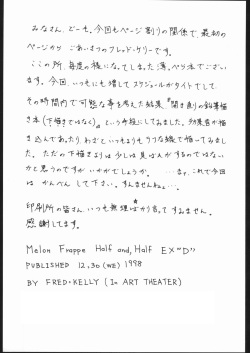 みなさん、どーも。今回もページ割りの関係で、最初の
ページから ごあいさつのフレッド・ケリーです。
ここの所、毎度の様になってしまった薄、ぺら本でござい
ます。今回、いつにも増してスケジュールがタイトでして、
その時間内で可能な事を考えた結果『聞き直りの鉛筆描
き本(下描きではなく)』という手段にしてみました。効果音が描
き込んであったり、わざといつもよりラフな線で描いてみまし
た。ただの下描きよりは少しは見ばえがするのではない
かと思うのですがいかがでしょうか。 …ま、これで今回
は かんべん して下さい。すんませんねぇ…。
印刷所の皆さん、いつも無理ばかり言って すみません。
感謝してます。
Melon Frappe Half and, Half EX"D"
PUBLISHED 12.30 (WE) 1998
BY FRED・KELLY (In ART THEATER)